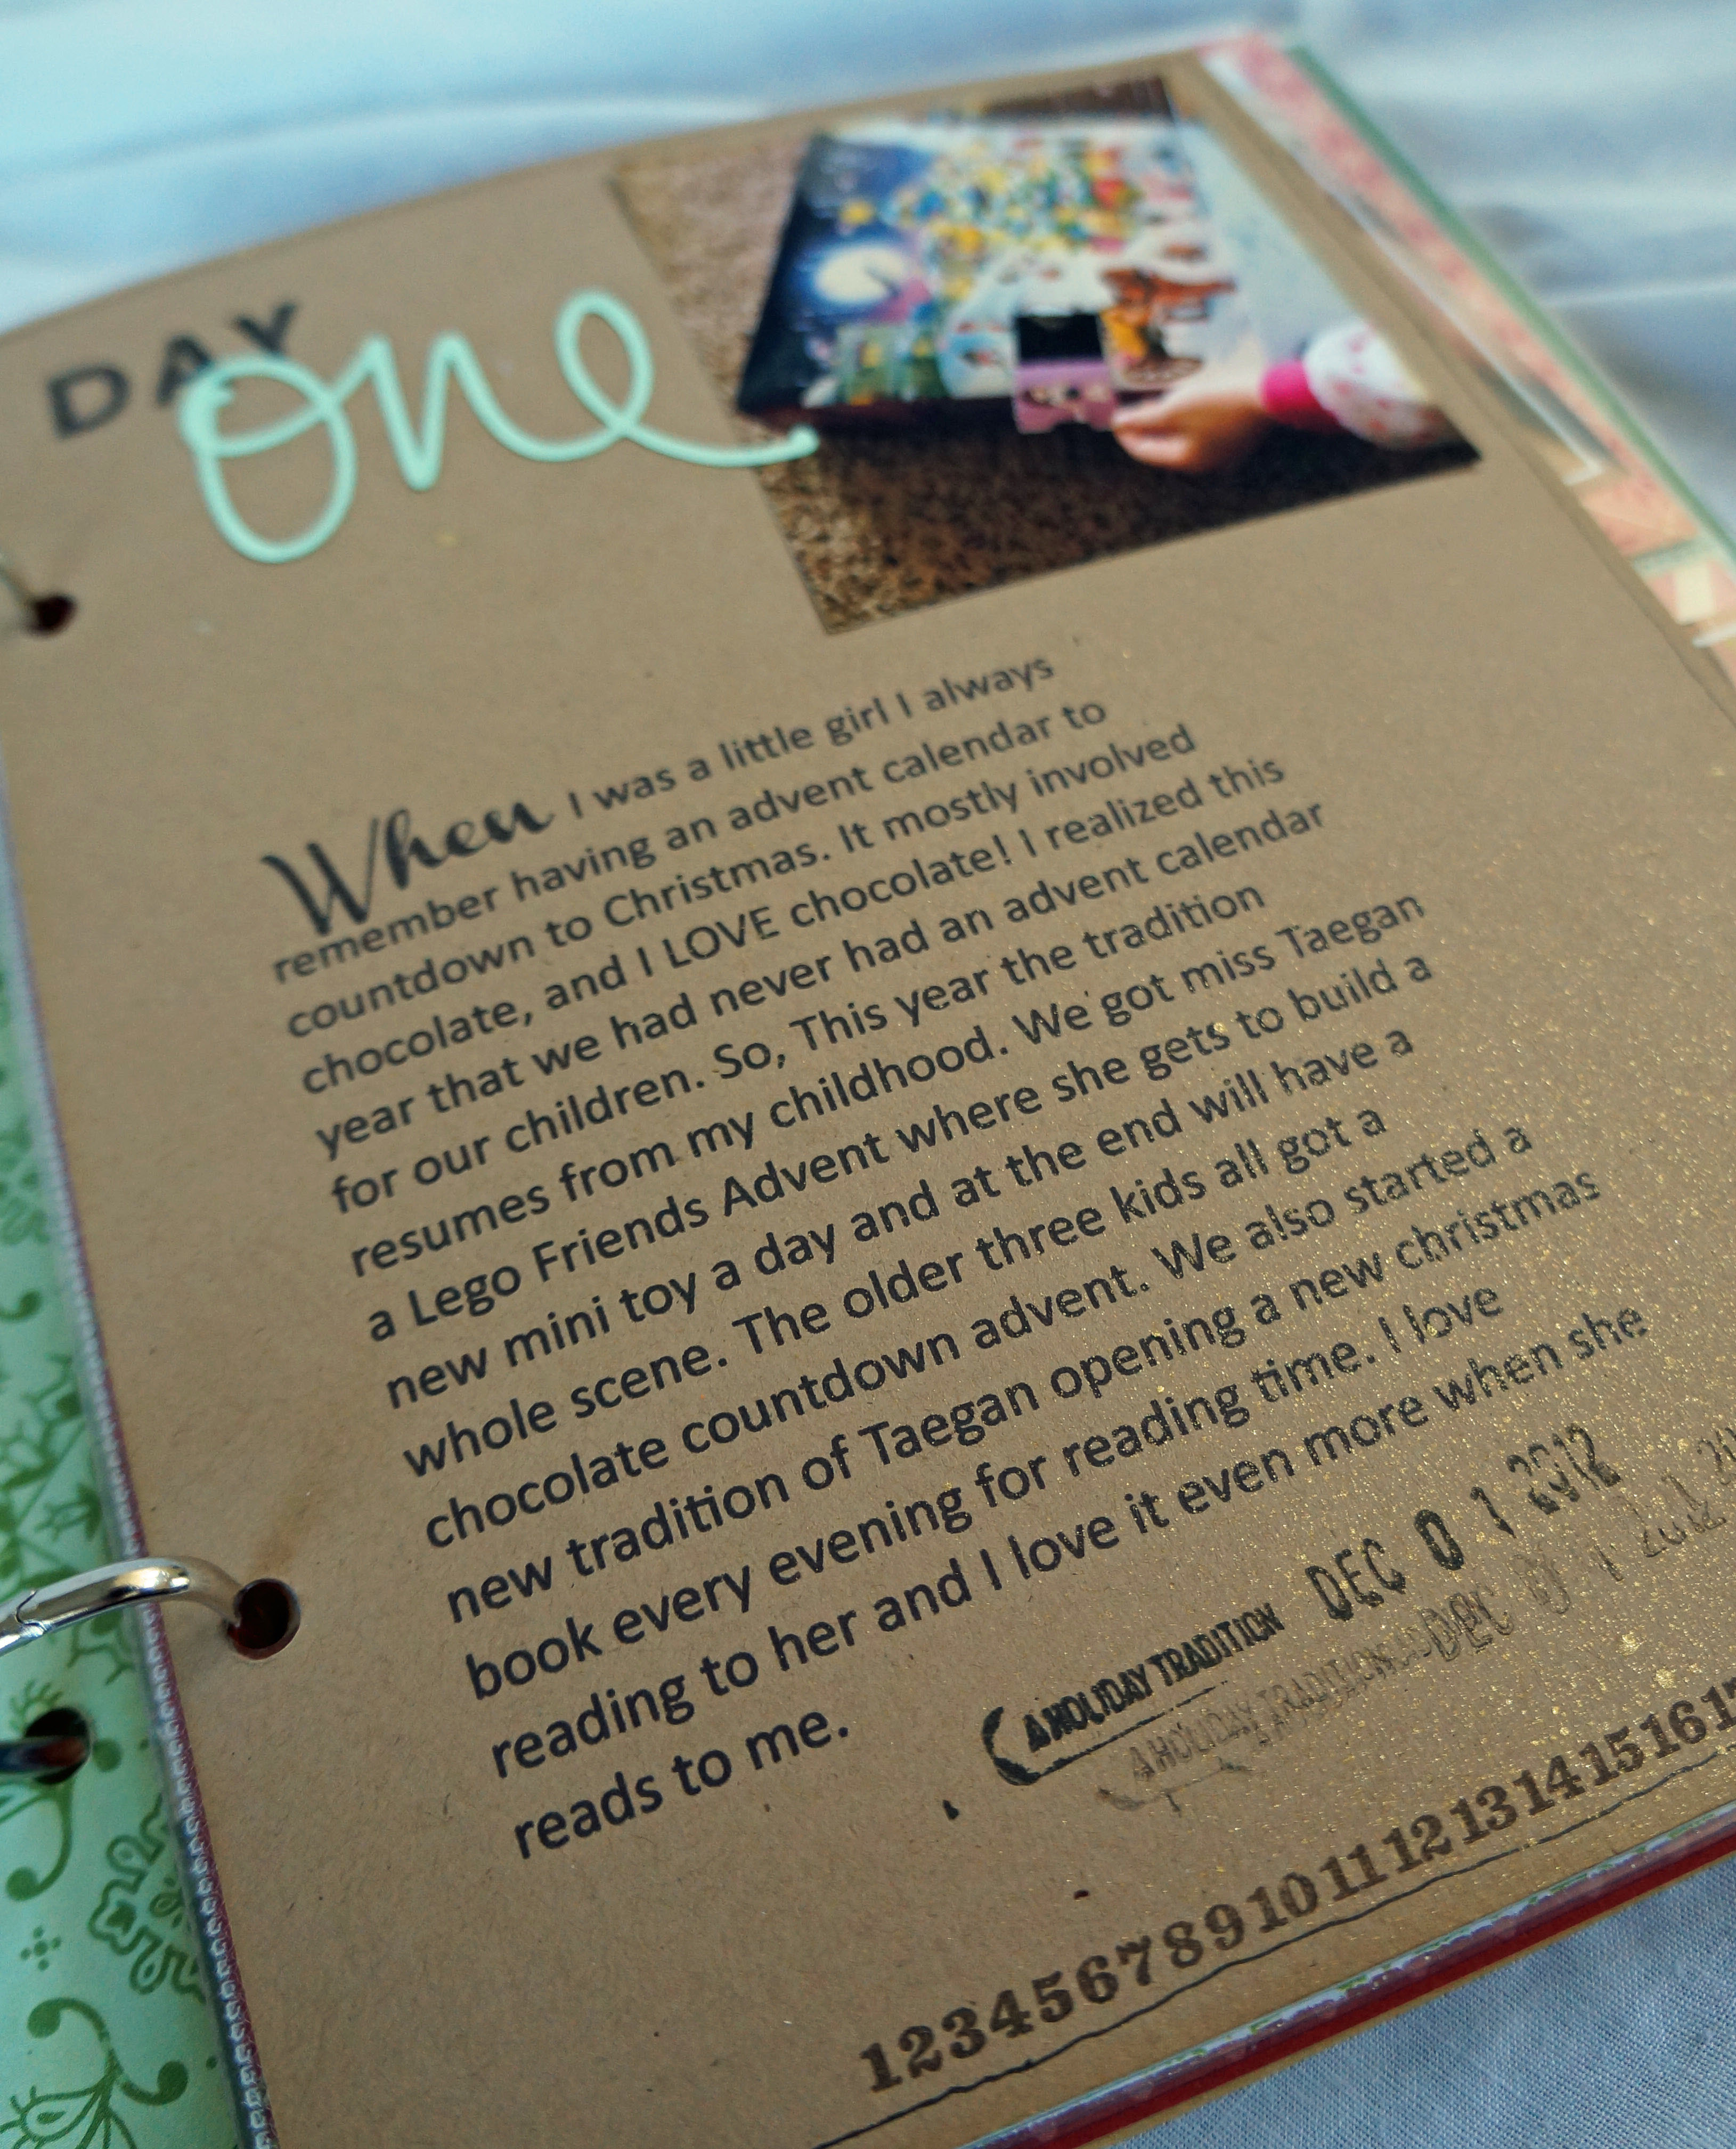 DAY
one
When I was a little girl I always
remember having an advent calendar to
countdown to Christmas. It mostly involved
chocolate, and I LOVE chocolate! I realized this
year that we had never had an advent calendar
for our children. So, This year the tradition
resumes from my childhood. We got miss Taegan
a Lego Friends Advent where she gets to build a
new mini toy a day and at the end will have a
whole scene. The older three kids all got a
chocolate countdown advent. We also started a
new tradition of Taegan opening a new christmas
book every evening for reading time. I love
reading to her and I love it even more when she
reads to me.
A HOLIDAY TRADITION DEC 0 1 2012
A HOLIDAY TRADITION DEC 0 1 2012
1 2 3 4 5 6 7 8 9 10 11 12 13 14 15 16